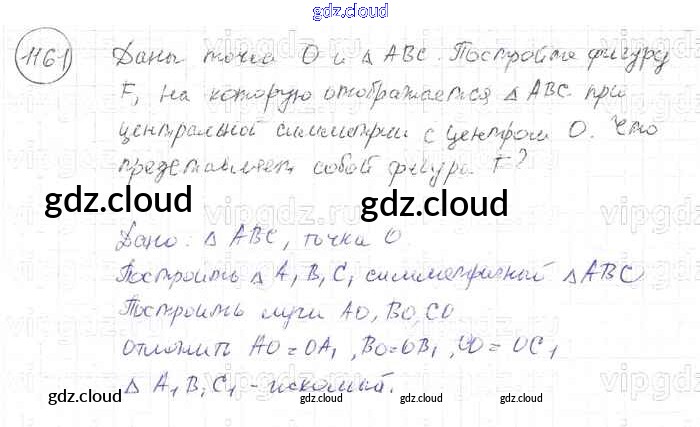 gdz.cloud
1161
Даны точка О и △ АВС. Постройте фигуру
F, на которую отображается △ АВС при
центральной симметрии с центром О. Что
представляет собой фигура F?
gdz.cloud gdz.cloud
Дано: △ АВС, точка О.
Построить △ А₁В₁С₁ симметричный △АВС
Построить лучи АО, ВО, СО
Отложить АО=ОА₁, ВО=ОВ₁, СО=ОС₁
△ А₁В₁С₁ - искомый.
gdz.cloud gdz.cloud gdz.cloud gdz.cloud